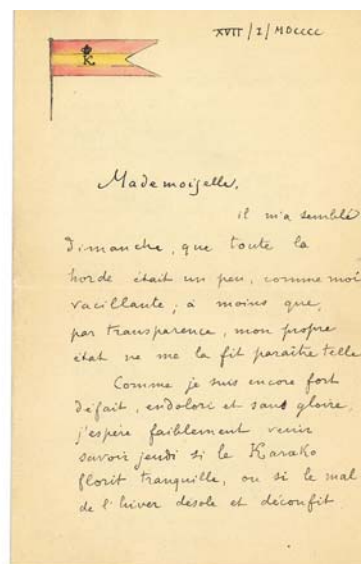 K
XVII/I/MDCCCC
Mademoiselle,
il m'a semblé
dimanche, que toute la
horde était un peu, comme moi
vacillante; à moins que,
par transparence, mon propre
état ne me la fit paraître telle
Comme je suis encore fort
défait, endolori et sans gloire,
j'espère faiblement venir
savoir jeudi si le Karako
florit tranquille, ou si le mal
de l'hiver désole et déconfit